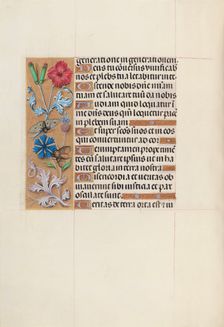 generatione in generationem
Deus tu conversus vivificab
nos et plebs tua letabitur in te
Ostende nobis dne mi
am et salutare tuum da nobis
Audiam quid loquatur i
me dns deus qm loquetur pacem
in plebem suam
Et super sctos suos et in eos
qui convertuntur ad cor
Verumptamen prope time
tes eum salutare ipsius ut inha
bitet gloria in terra nostra
Misericordia et veritas ob
viaverunt sibi iusticia et pax
osculate sunt
Veritas de terra orta est et iu